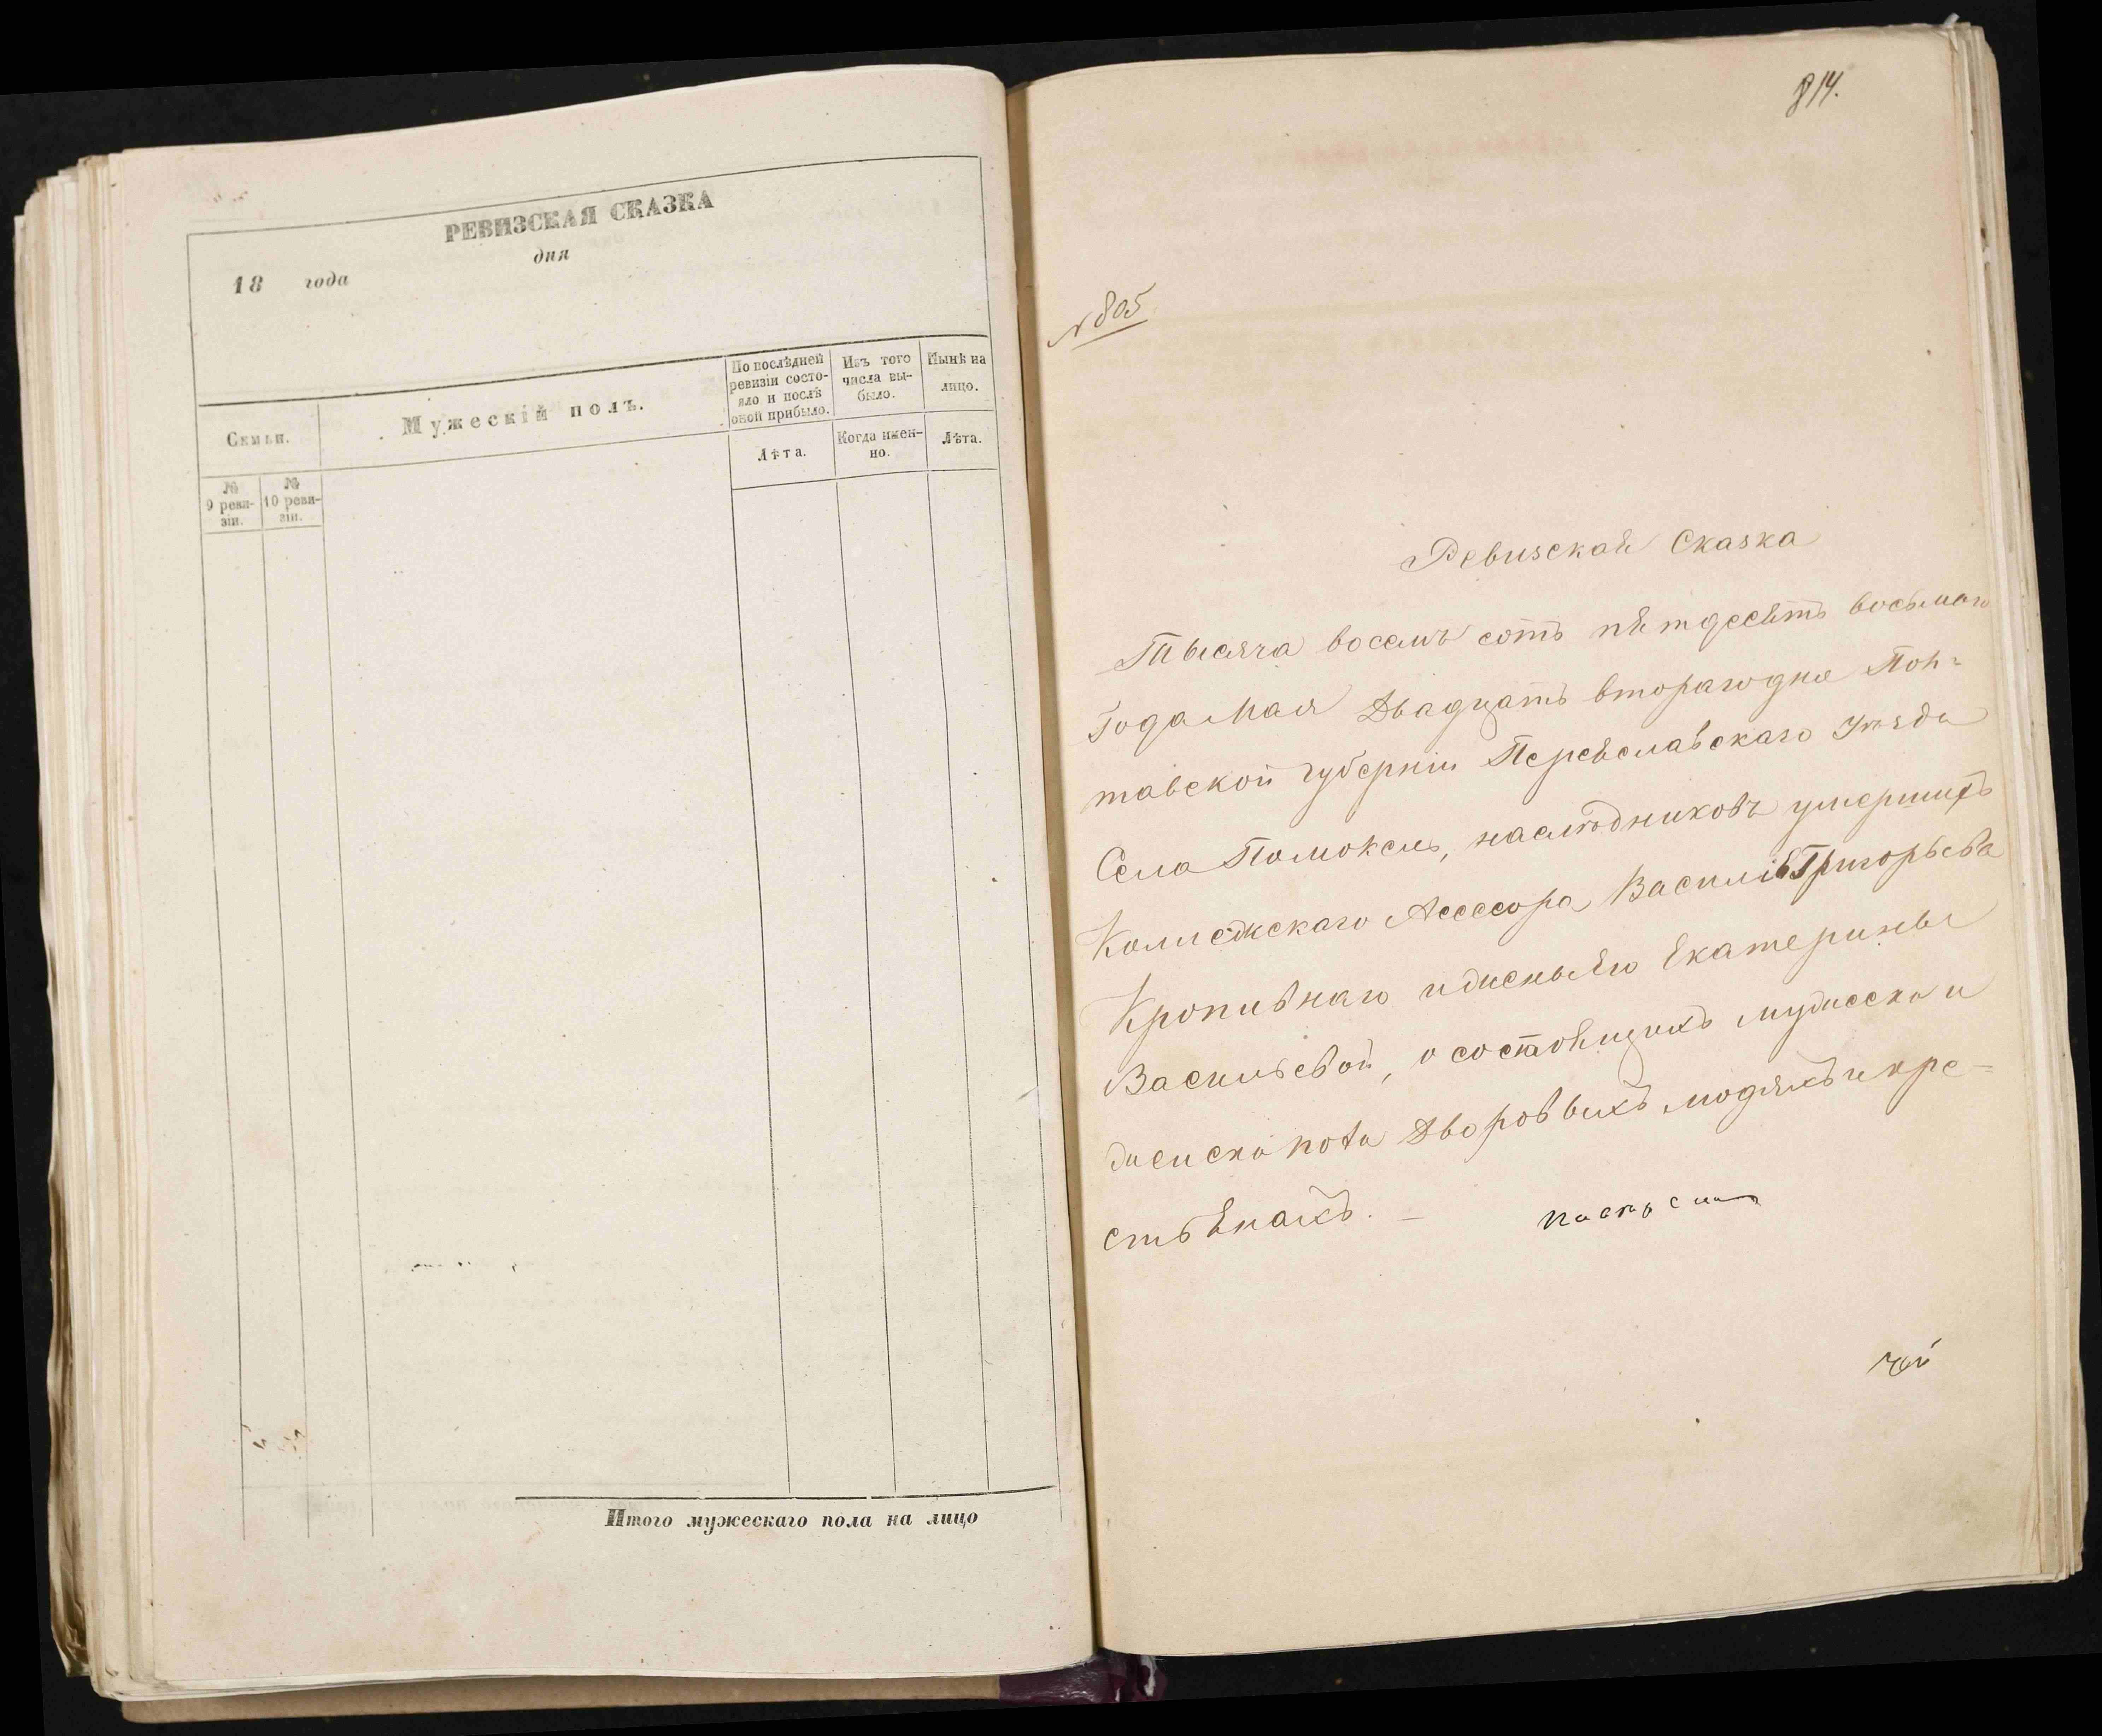 РЕВИЗСКАЯ СКАЗКА
18 года дня
Семьи.
Мужескій полъ.
По послѣдней ревизіи состо-
яло и послѣ оной прибыло.
Изъ того числа вы-
было.
Нынѣ на лицо.
Лѣта.
Когда имен-
но.
Лѣта.
№ 9 реви-
зіи.
№ 10 реви-
зіи.
Итого мужескаго пола на лицо
814.
№ 805
Ревизская Сказка
Тысяча восемъ сотъ пятдесятъ восьмаго
Года Мая Двадцать втораго дня Пол-
тавской губерніи Переяславскаго уѣзда
Села Помоклъ, наслѣдниковъ умершихъ
Колежскаго Асессора Василія Григорьева
Кропивнаго и жены Его Екатерины
Васильевой, о состоящихъ мужеска и
женска пола Дворовыхъ людяхъ и кре-
стьянахъ. —